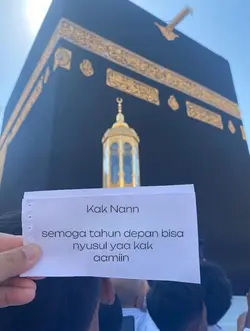 Kak Nann
semoga tahun depan bisa
nyusul yaa kak
aamiin